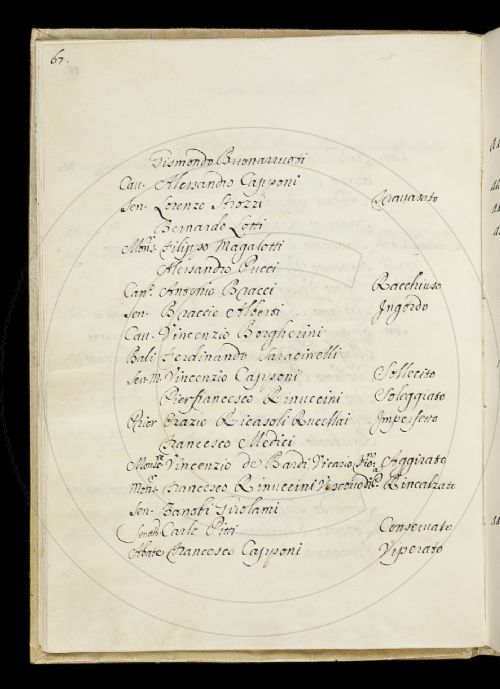 67.
Gismondo Buonarruoti
Cau. Alessandro Capponi
Sen. Lorenzo Strozzi Travasato
Bernardo Lotti
Mons. Filippo Magalotti
Alessandro Pucci
Can. Antonio Bracci Racchiuso
Sen. Braccio Alberti Ingordo
Cau. Vincenzio Borgherini
Balì Ferdinando
Sen. M. Vincenzio Capponi Sollecito
Pierfrancesco Rinuccini Soleggiato
Prior Orazio Ricasoli Rucellai Imperfetto
Francesco Medici
Monsre Vincenzio de Bardi Vicario Aggirato
Mons. Francesco Rinuccini Vescovo di Rincalzato
Sen. Zanobi Girolami
Senat. Carlo Pitti Conservato
Abate Francesco Capponi Viperato